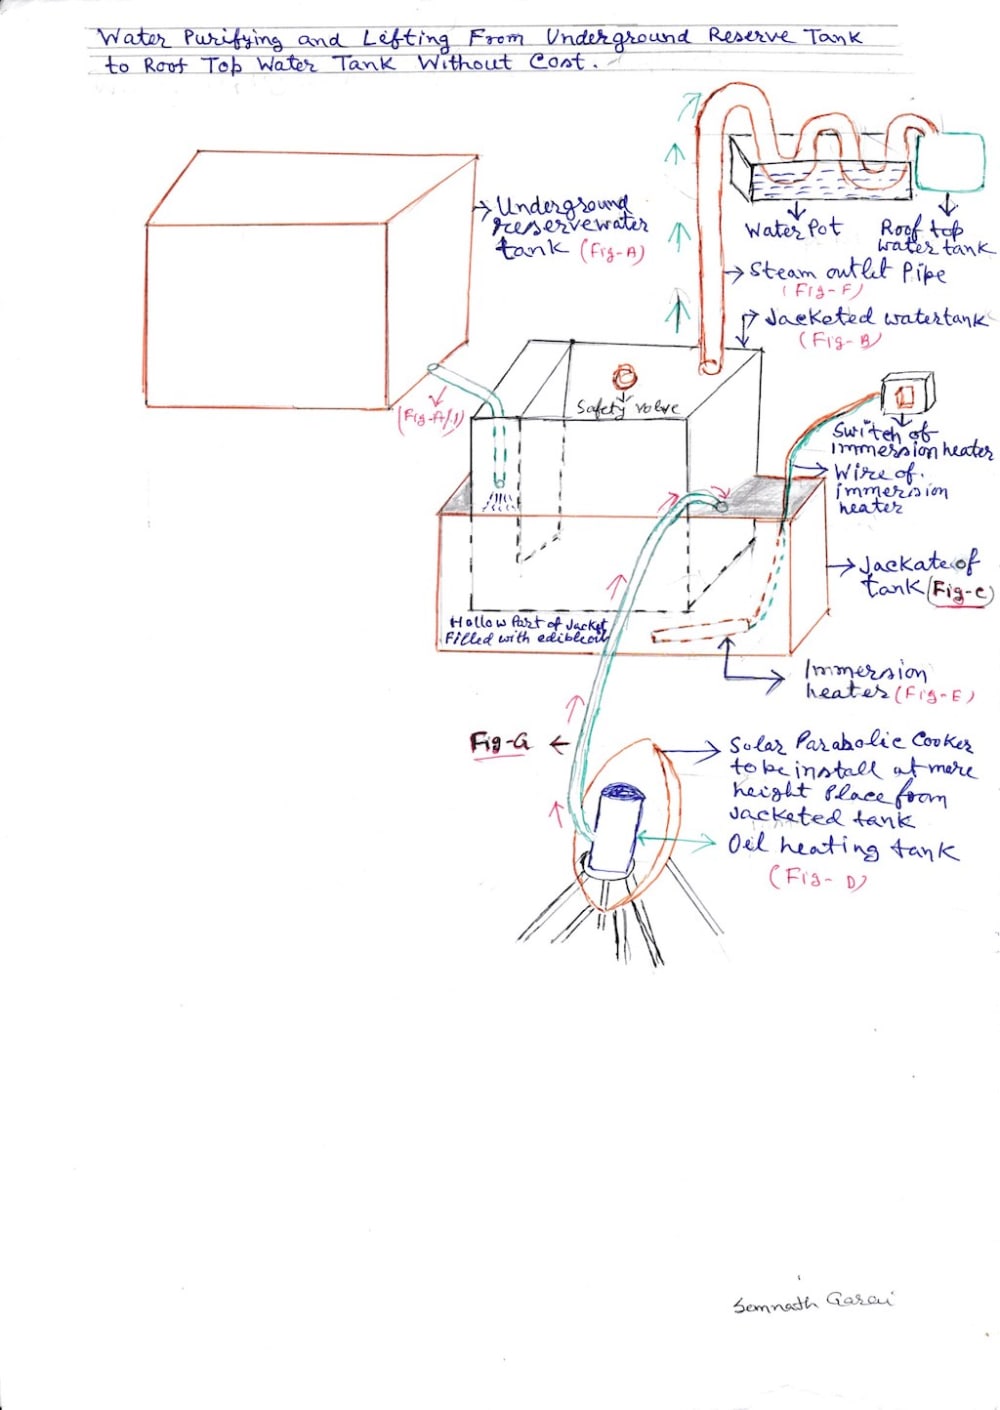 Water Purifying and Lifting From Underground Reserve Tank
to Roof Top Water Tank Without Cost.
Underground
reserve water
tank (Fig-A)
Water Pot
Roof top
water tank
Steam outlet Pipe
(Fig-F)
Jacketed watertank
(Fig-B)
(Fig-A/1)
Safety valve
Switch of
immersion heater
Wire of
immersion
heater
Jackate of
tank (Fig-C)
Hollow Part of Jacket
Filled with edible oil
Immersion
heater (Fig-E)
Fig-G
Solar Parabolic Cooker
to be install at more
height Place from
Jacketed tank
Oil heating tank
(Fig-D)
Somnath Garai